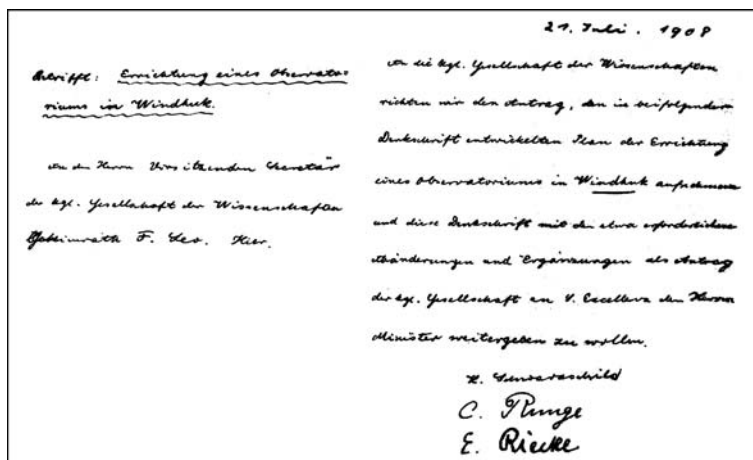 21. Juli. 1908
Betrifft: Errichtung eines Observato-
riums in Windhuk.
An den Herrn Vorsitzenden Secretär
der kgl. Gesellschaft der Wissenschaften
Geheimrath F. Leo. Hier.
An die kgl. Gesellschaft der Wissenschaften
richten wir den Antrag, den in beifolgender
Denkschrift entwickelten Plan der Errichtung
eines Observatoriums in Windhuk aufzunehmen
und diese Denkschrift mit den etwa erforderlichen
Abänderungen und Ergänzungen als Antrag
der kgl. Gesellschaft an S. Excellenz den Herrn
Minister weitergeben zu wollen.
K. Schwarzschild
C. Runge
E. Riecke